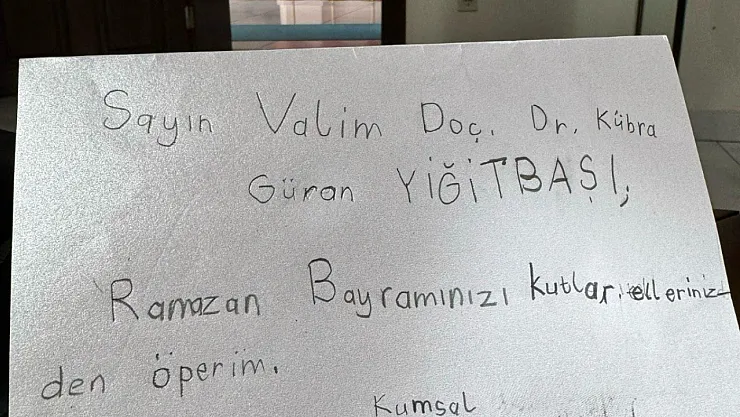 Sayın Valim Doç. Dr. Kübra
Güran YİĞİTBAŞI,
Ramazan Bayramınızı kutlar, elleriniz-
den öperim.
Kumsal